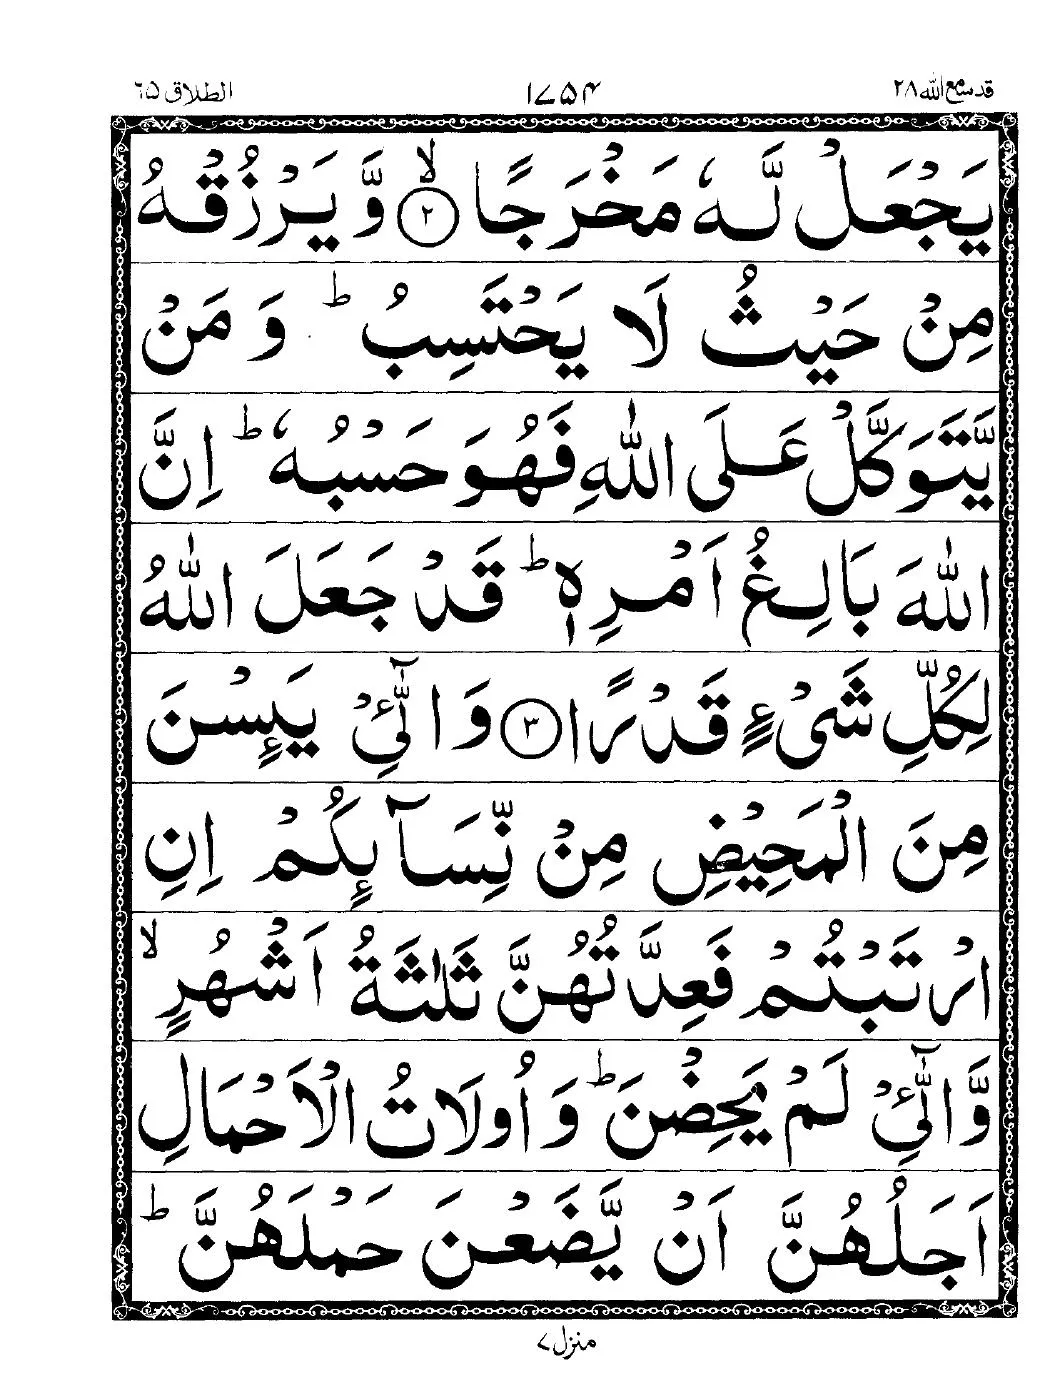 قد سمع الله ۲۸ ۱۷۵۴ الطلاق ٦۵
يَجْعَلْ لَّهٗ مَخْرَجًا ۙ﴿۲﴾ وَّ يَرْزُقْهُ
مِنْ حَيْثُ لَا يَحْتَسِبُ ؕ وَ مَنْ
يَّتَوَكَّلْ عَلَى اللّٰهِ فَهُوَ حَسْبُهٗ ؕ اِنَّ
اللّٰهَ بَالِغُ اَمْرِهٖ ؕ قَدْ جَعَلَ اللّٰهُ
لِكُلِّ شَیْءٍ قَدْرًا ﴿۳﴾ وَ الّٰٓـِٔیْ يَىِٕسْنَ
مِنَ الْمَحِيْضِ مِنْ نِّسَآىِٕكُمْ اِنِ
ارْتَبْتُمْ فَعِدَّتُهُنَّ ثَلٰثَةُ اَشْهُرٍ ۙ
وَّ الّٰٓـِٔیْ لَمْ يَحِضْنَ ؕ وَ اُولَاتُ الْاَحْمَالِ
اَجَلُهُنَّ اَنْ يَّضَعْنَ حَمْلَهُنَّ ؕ
منزل ۷